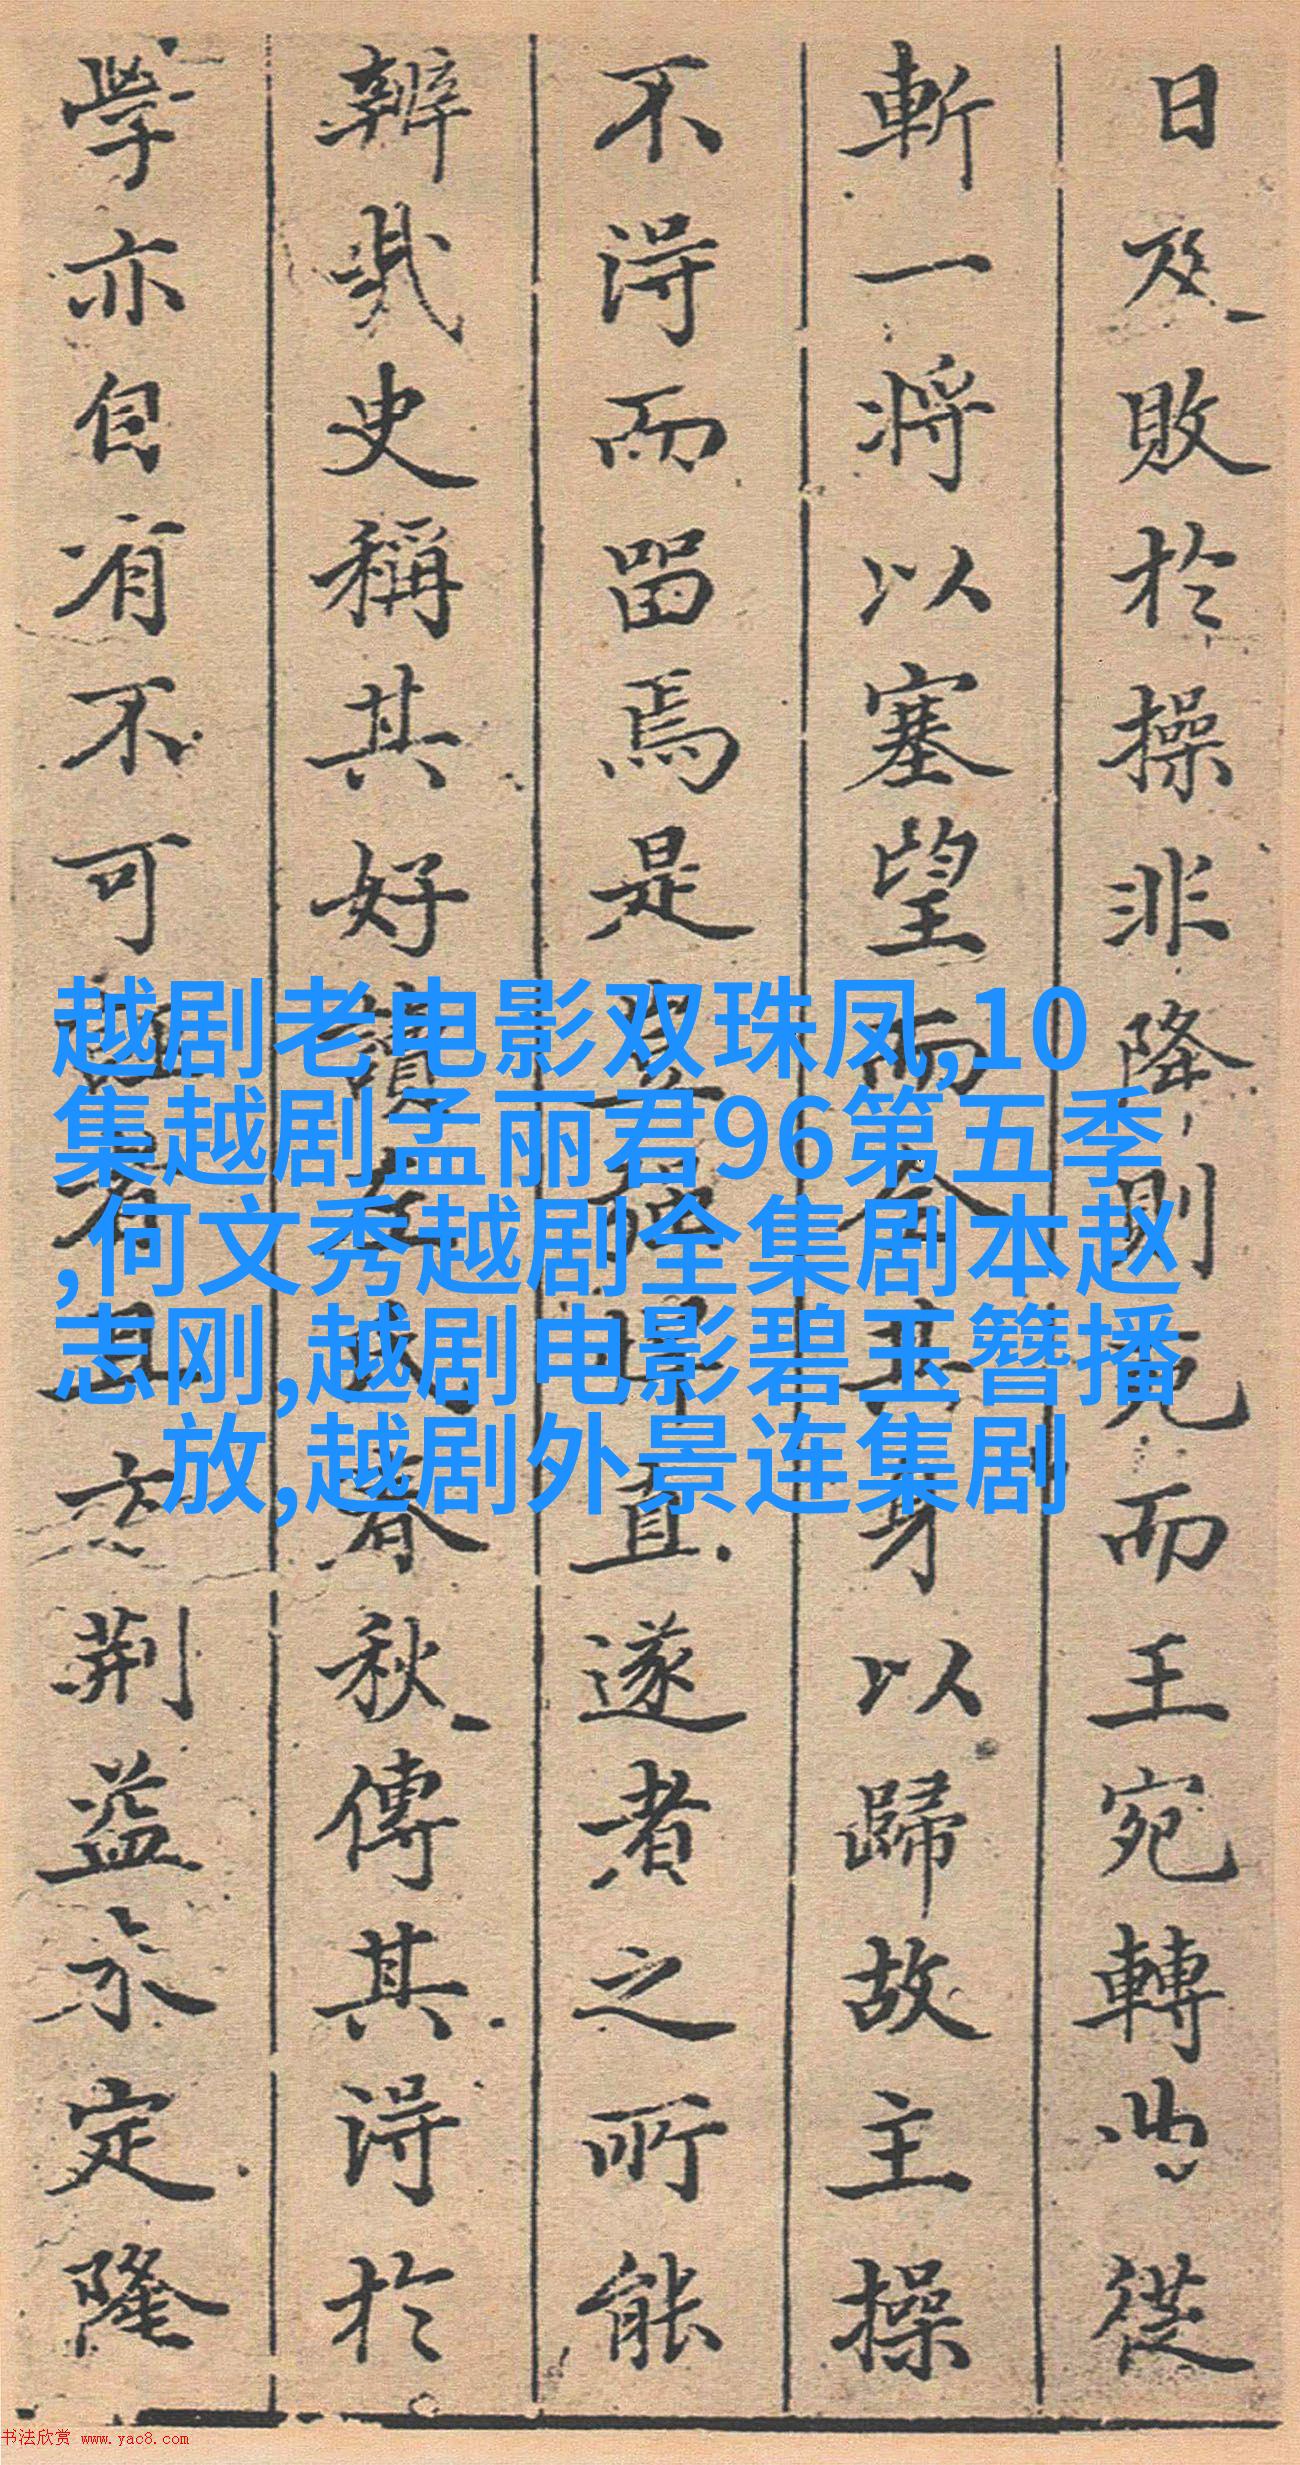 日及敗於操非降則死而王宛轉曲從
斬一將以塞望而全其身以歸故主操
不得而留焉是豈直遂者之所能
辨哉史稱其好讀左氏春秋傳其得於
學亦自有不可者且方荊益未定隆
越剧老电影双珠凤,10
集越剧孟丽君96第五季
,何文秀越剧全集剧本赵
志刚,越剧电影碧玉簪播
放,越剧外景连集剧
书法欣赏 www.yac8.com